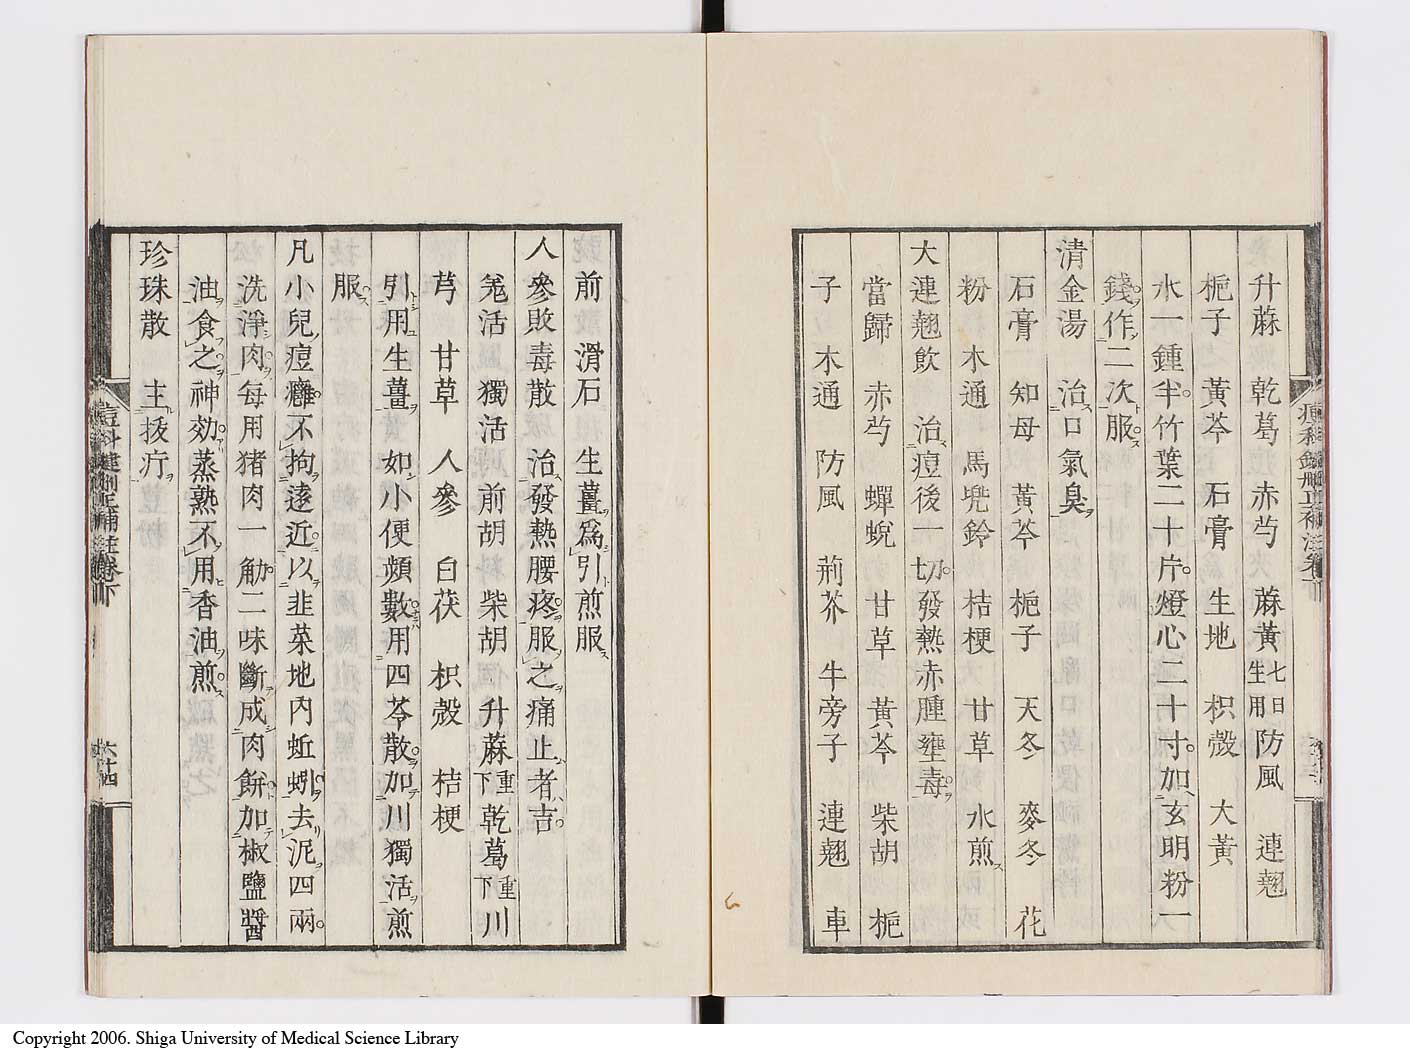 升蔴 乾葛 赤芍 蔴黃 七日生用 防風 連翹
梔子 黃芩 石膏 生地 枳殼 大黃
水一鍾半竹葉二十片燈心二十寸加玄明粉一
錢作二次服
清金湯 治口氣臭
石膏 知母 黃芩 梔子 天冬 麥冬 花
粉 木通 馬兜鈴 桔梗 甘草 水煎
大連翹飲 治痘後一切發熱赤腫壅毒
當歸 赤芍 蟬蛻 甘草 黃芩 柴胡 梔
子 木通 防風 荊芥 牛旁子 連翹 車
前 滑石 生薑爲引煎服
人參敗毒散 治發熱腰疼服之痛止者吉
羗活 獨活 前胡 柴胡 升蔴重下 乾葛重下 川
芎 甘草 人參 白茯 枳殼 桔梗
引用生薑 如小便頻數用四苓散加川獨活煎
服
凡小兒痘癰不拘遠近以韭菜地內蚯蚓去泥四兩
洗淨肉每用猪肉一觔二味斷成肉餅加椒鹽醬
油食之神効蒸熟不用香油煎
珍珠散 主拔疔
六十四
Copyright 2006. Shiga University of Medical Science Library